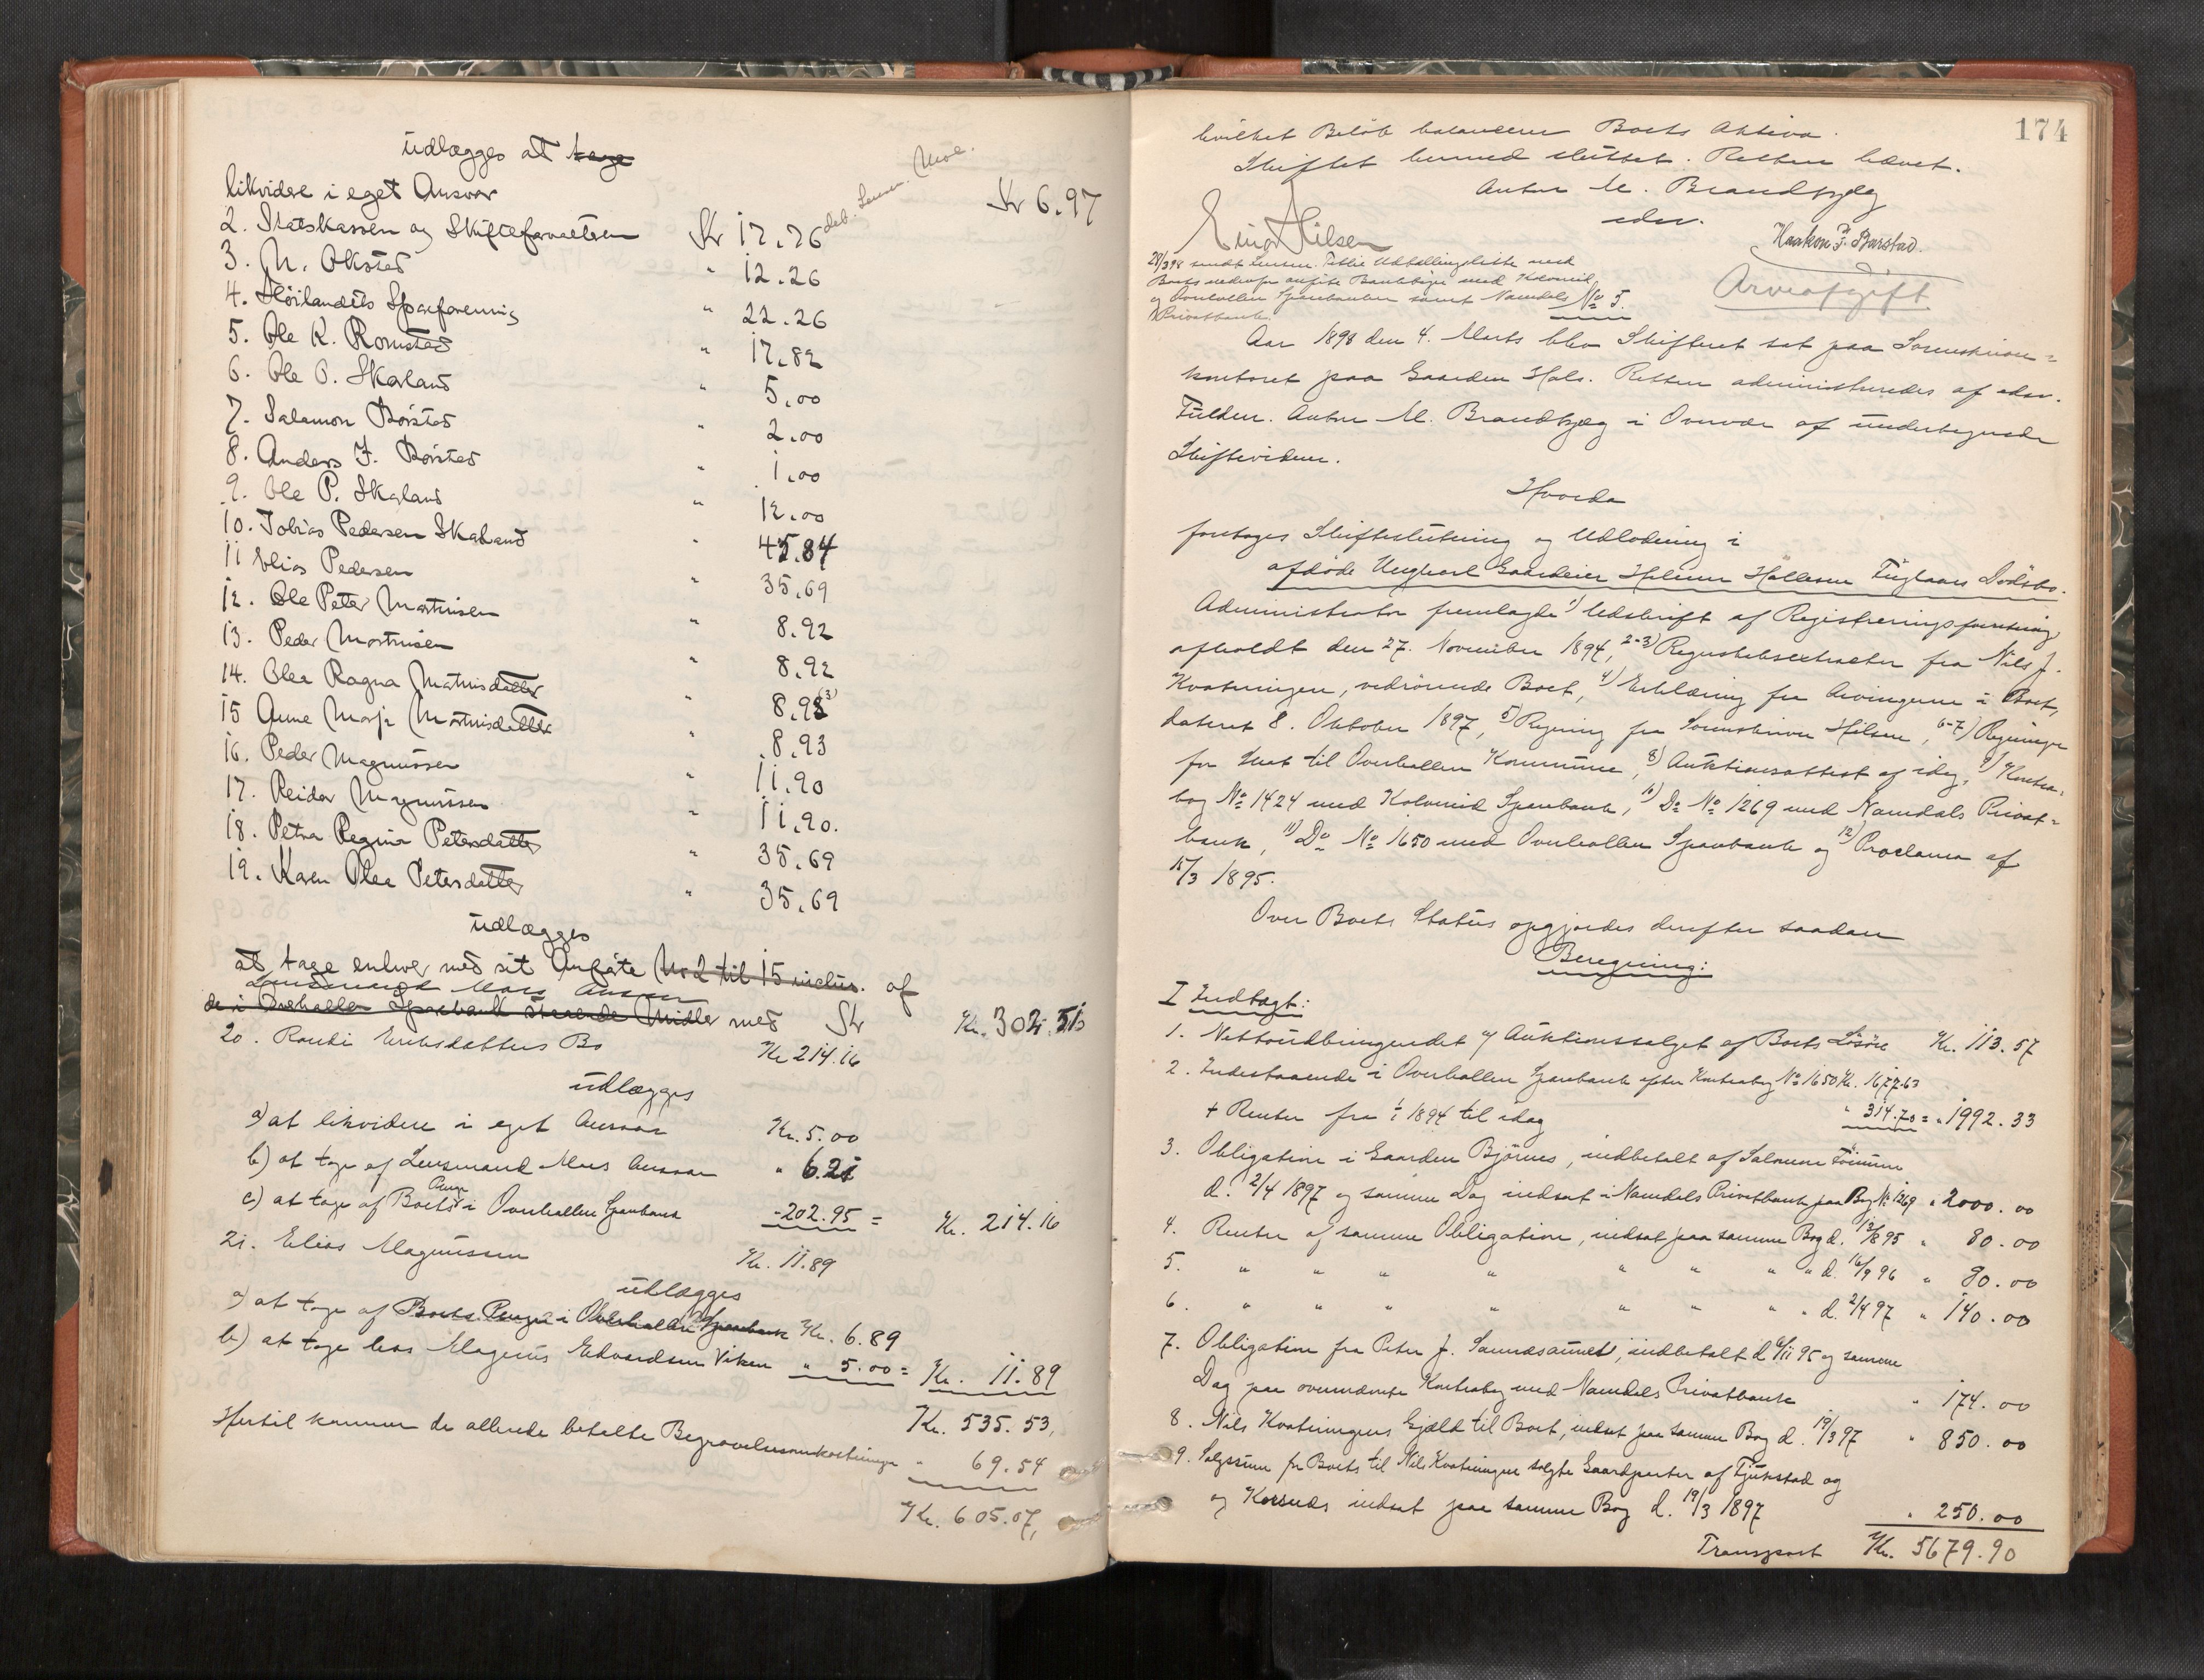 udlægges at tage
likvidere i eget Ansvar Kr 6.97
2. Statskassen og Skifteforvalteren Kr 17.76
3. M. Okstad " 12.26
4. Höilandets Spareforening " 22.26
5. Ole K. Romstad " 17.82
6. Ole O. Skarland " 5.00
7. Salamon Börstad " 2.00
8. Anders J. Börstad " 1.00
9. Ole P. Skarland " 12.00
10. Tobias Pedersen Skarland " 45.84
11 Elias Pedersen " 35.69
12. Ole Peter Martinsen " 8.92
13. Peder Martinsen " 8.92
14. Olea Ragna Martinsdatter " 8.93
15 Anne Marje Martinsdatter " 8.93
16. Peder Magnussen " 11.90
17. Reidar Magnussen " 11.90.
18. Petra Regina Petersdatter " 35.69
19. Karen Olea Petersdatter " 35.69
udlægges
at tage enhver med sit Anpate No 2 til 15 inclus. af
Lensmand Moes Ansvar
de i Overhallen Sparebank staaende Midler med Kr Kr. 302.51
20. Randi Eriksdatters Bo Kr 214.16
udlægges
a) at likvidere i eget Ansvar Kr. 5.00
b) at tage af Lensmand Moes Ansvar " 6.21
c) at tage af Boets Penge i Overhallen Sparebank - 202.95 = Kr. 214.16
21. Elias Magnussen Kr. 11.89
udlægges
a) at tage af Boets Penge i Overhallen Sparebank Kr. 6.89
b) at tage hos Magnus Edvardsen Viken " 5.00 = Kr. 11.89
Kr. 535.53,
Hertil kommer de allerede betalte Begravelsesomkostninger " 69.54
Kr. 605.07,
174
hvilket Beløb balancerer Boets Aktiva.
Skiftet hermed sluttet. Retten hævet.
Anton M. Brandtzæg
edsv.
Einar Hilsen Haakon P. Barstad.
Arveafgift
No 5.
Privatbank.
Aar 1898 den 4. Marts blev Skifteret sat paa Sorenskriver=
kontoret paa Gaarden Hals. Retten administreredes af edsv.
Fuldm. Anton M. Brandtzæg i Overvær af undertegnede
Skiftevidner.
Hvorda
foretoges Skifteslutning og Udlodning i
afdøde Ungkarl Gaardeier Helmer Hallesen Fuglaars Dödsbo.
Administrator fremlagde 1) Udskrift af Registreringsforretning
afholdt den 27. November 1894, 2-3) Regnskabsextracter fra Nils J.
Kvatningen, vedrörende Boet, 4) Erklæring fra Arvingerne i Boet,
dateret 8. Oktober 1897, 5) Regning fra Sorenskriver Hilsen, 6-7) Regninger
for Skat til Overhallen Kommune, 8) Auktionsattest af idag, 9) Kontra-
bog No 1424 med Kolvereid Sparebank, 10) Do No 1269 med Namdals Privat=
bank, 11) Do No 1650 med Overhallen Sparebank og 12) Proclama af
15/3 1895.
Over Boets Status opgjordes derefter saadan
Beregning:
I Indtægt:
1. Nettoudbringendet af Auktionssalget af Boets Lösöre Kr. 113.57
2. Indestaaende i Overhallen Sparebank efter Kontrabog No 1650 Kr. 1677.63
+ Renter fra 1/1 1894 til idag " 314.70 = " 1992.33
3. Obligation i Gaarden Björnes, indbetalt af Salomon
d. 2/4 1897 og samme Dag indsat i Namdals Privatbank paa Bog No 1269 " 2000.00
4. Renter af samme Obligation, indsat paa samme Bog d. 12/8 95 " 80.00
5. " " " " " " " " d. 16/9 96 " 80.00
6. " " " " " " " " d. 2/4 97 " 140.00
7. Obligation fra Peter J. indbetalt d 6/11 95 og samme
Dag paa ovennævnte Kontrabog med Namdals Privatbank " 174.00
8. Nils Kvatningens Gjæld til Boet, indsat paa samme Bog d. 19/3 97 " 850.00
9. Salgssum for Boets til Nils Kvatningen solgte Gaardparter af Tjukstad og
og Korsnes indsat paa samme Bog d. 19/3 1897 " 250.00
Transport Kr. 5679.90